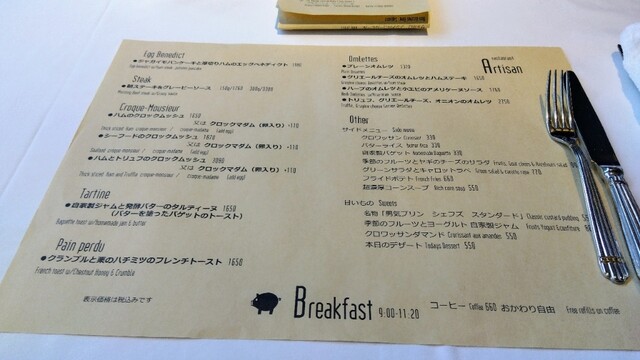 Egg Benedict
●ジャガイモパンケーキと厚切りハムのエッグベネディクト
Steak
●朝ステーキ&グレービーソース 150g/1760
Croque-Mousieur
●ハムのクロックムッシュ 1650
又は クロックマダム (卵入り) +110
●シーフードのクロックムッシュ 1870
又は クロックマダム (卵入り) +110
●ハムとトリュフのクロックムッシュ 3080
又は クロックマダム (卵入り) +110
Tartine
●自家製ジャムと発酵バターのタルティーヌ 1650
(バターを塗ったバゲットのトースト)
Baguette toast w/homemade jam & butter
Pain perdu
●クランブルと栗のハチミツのフレンチトースト 1650
French toast w/Chestnut Honey & Crumble
表示価格は税込みです
Omlettes
●プレーンオムレツ
●グリエールチーズのオムレツとハムステーキ 1650
●ハーブのオムレツと小エビのアメリケーヌソース 1760
●トリュフ、グリエールチーズ、オニオンのオムレツ
restaurant
Artisan
Other
サイドメニュー Side menu
クロワッサン Croissant 330
バターライス butter rice 330
自家製バゲット Homemade Baguette 330
季節のフルーツとヤギのチーズのサラダ
グリーンサラダとキャロットラペ Green salad & carotte rape 770
フライドポテト French fries 660
超濃厚コーンスープ Rich corn soup 550
甘いもの Sweets
名物「男気プリン シェフズ スタンダード」 Classic custard pudding
季節のフルーツとヨーグルト 自家製ジャム Fruits Yogurt & confiture
クロワッサンダマンド Croissant aux amandes 550
本日のデザート Todays Dessert 550
Breakfast 9:00-11:20
コーヒー Coffee 660 おかわり自由 Free refills on coffee